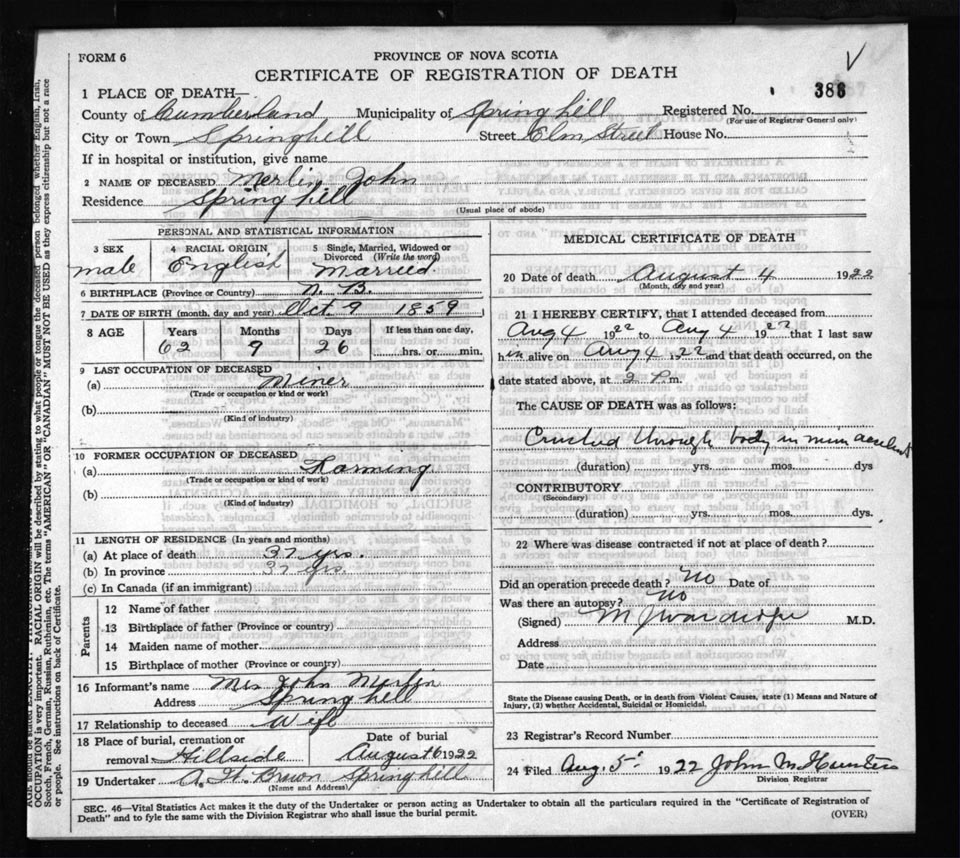 FORM 6
PROVINCE OF NOVA SCOTIA
CERTIFICATE OF REGISTRATION OF DEATH
386
1 PLACE OF DEATH—
County of Cumberland Municipality of Springhill Registered No.
(For use of Registrar General only)
City or Town Springhill Street Elm Street House No.
If in hospital or institution, give name
2 NAME OF DECEASED Merlin, John
Residence Springhill
(Usual place of abode)
PERSONAL AND STATISTICAL INFORMATION
3 SEX male
4 RACIAL ORIGIN English
5 Single, Married, Widowed or Divorced (Write the word) Married
6 BIRTHPLACE (Province or Country) N. B.
7 DATE OF BIRTH (month, day and year) Oct. 9 1859
8 AGE Years Months Days If less than one day,
62 9 26 hrs. or min.
9 LAST OCCUPATION OF DECEASED
(a) Miner
(Trade or occupation or kind or work)
(b)
(Kind of industry)
10 FORMER OCCUPATION OF DECEASED
(a) Farming
(Trade or occupation or kind or work)
(b)
(Kind of industry)
11 LENGTH OF RESIDENCE (In years and months)
(a) At place of death 37 yrs.
(b) In province 37 yrs.
(c) In Canada (if an immigrant)
Parents
12 Name of father
13 Birthplace of father (Province or country)
14 Maiden name of mother
15 Birthplace of mother (Province or country)
16 Informant's name Mrs John Merlin
Address Springhill
17 Relationship to deceased Wife
18 Place of burial, cremation or removal Hillside
Date of burial August 6 1922
19 Undertaker A. H. Brown Springhill
(Name and Address)
MEDICAL CERTIFICATE OF DEATH
20 Date of death August 4 1922
(Month, day and year)
21 I HEREBY CERTIFY, that I attended deceased from
Aug 4 1922 to Aug 4 1922 that I last saw
him alive on Aug 4 1922 and that death occurred, on the
date stated above, at 2 P. m.
The CAUSE OF DEATH was as follows:
Crushed through body in mine accident
(duration) yrs. mos. dys
CONTRIBUTORY
(Secondary)
(duration) yrs. mos. dys.
22 Where was disease contracted if not at place of death?
Did an operation precede death? No Date of
Was there an autopsy? No
(Signed) M. D.
Address
Date
State the Disease causing Death, or in death from Violent Causes, state (1) Means and Nature of
Injury, (2) whether Accidental, Suicidal or Homicidal.
23 Registrar's Record Number
24 Filed Aug. 5 1922 John M Hunter
Division Registrar
SEC. 46—Vital Statistics Act makes it the duty of the Undertaker or person acting as Undertaker to obtain all the particulars required in the "Certificate of Registration of
Death" and to fyle the same with the Division Registrar who shall issue the burial permit.
(OVER)
OCCUPATION is very important. RACIAL ORIGIN will be described by stating to what people or tongue the deceased person belonged whether English, Irish,
Scotch, French, German, Russian, Ruthenian, etc. The terms "AMERICAN" OR "CANADIAN" MUST NOT BE USED as they express citizenship but not a race
or people. See instructions on back of Certificate.